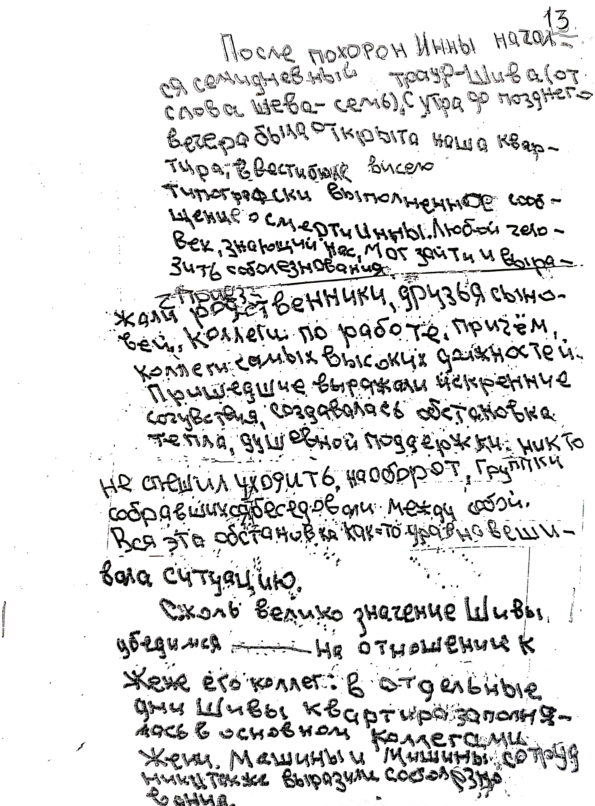 13
После похорон Инны начал-
ся семидневный траур-Шива (от
слова шева- семь). С утра до позднего
вечера была открыта наша квар-
тира, в вестибюле висело
типографски выполненное сооб-
щение о смерти Инны. Любой чело-
век, знающий нас, мог зайти и выра-
зить соболезнования.
Приез-
жали родственники, друзья сыно-
вей, коллеги по работе, причём,
коллеги самых высоких должностей.
Пришедшие выражали искренние
сочувствия, создавалась обстановка
тепла, душевной поддержки. никто
не спешил уходить, наоборот, группки
собравшихся беседовали между собой.
Вся эта обстановка как-то уравновеши-
вала ситуацию.
Сколь велико значение Шивы,
убедимся на отношении к
Жене его коллег: в отдельные
дни Шивы квартира заполня-
лась в основном коллегами
Жени. Машины и Мишины сотруд
ники также выразили соболезно
вания.